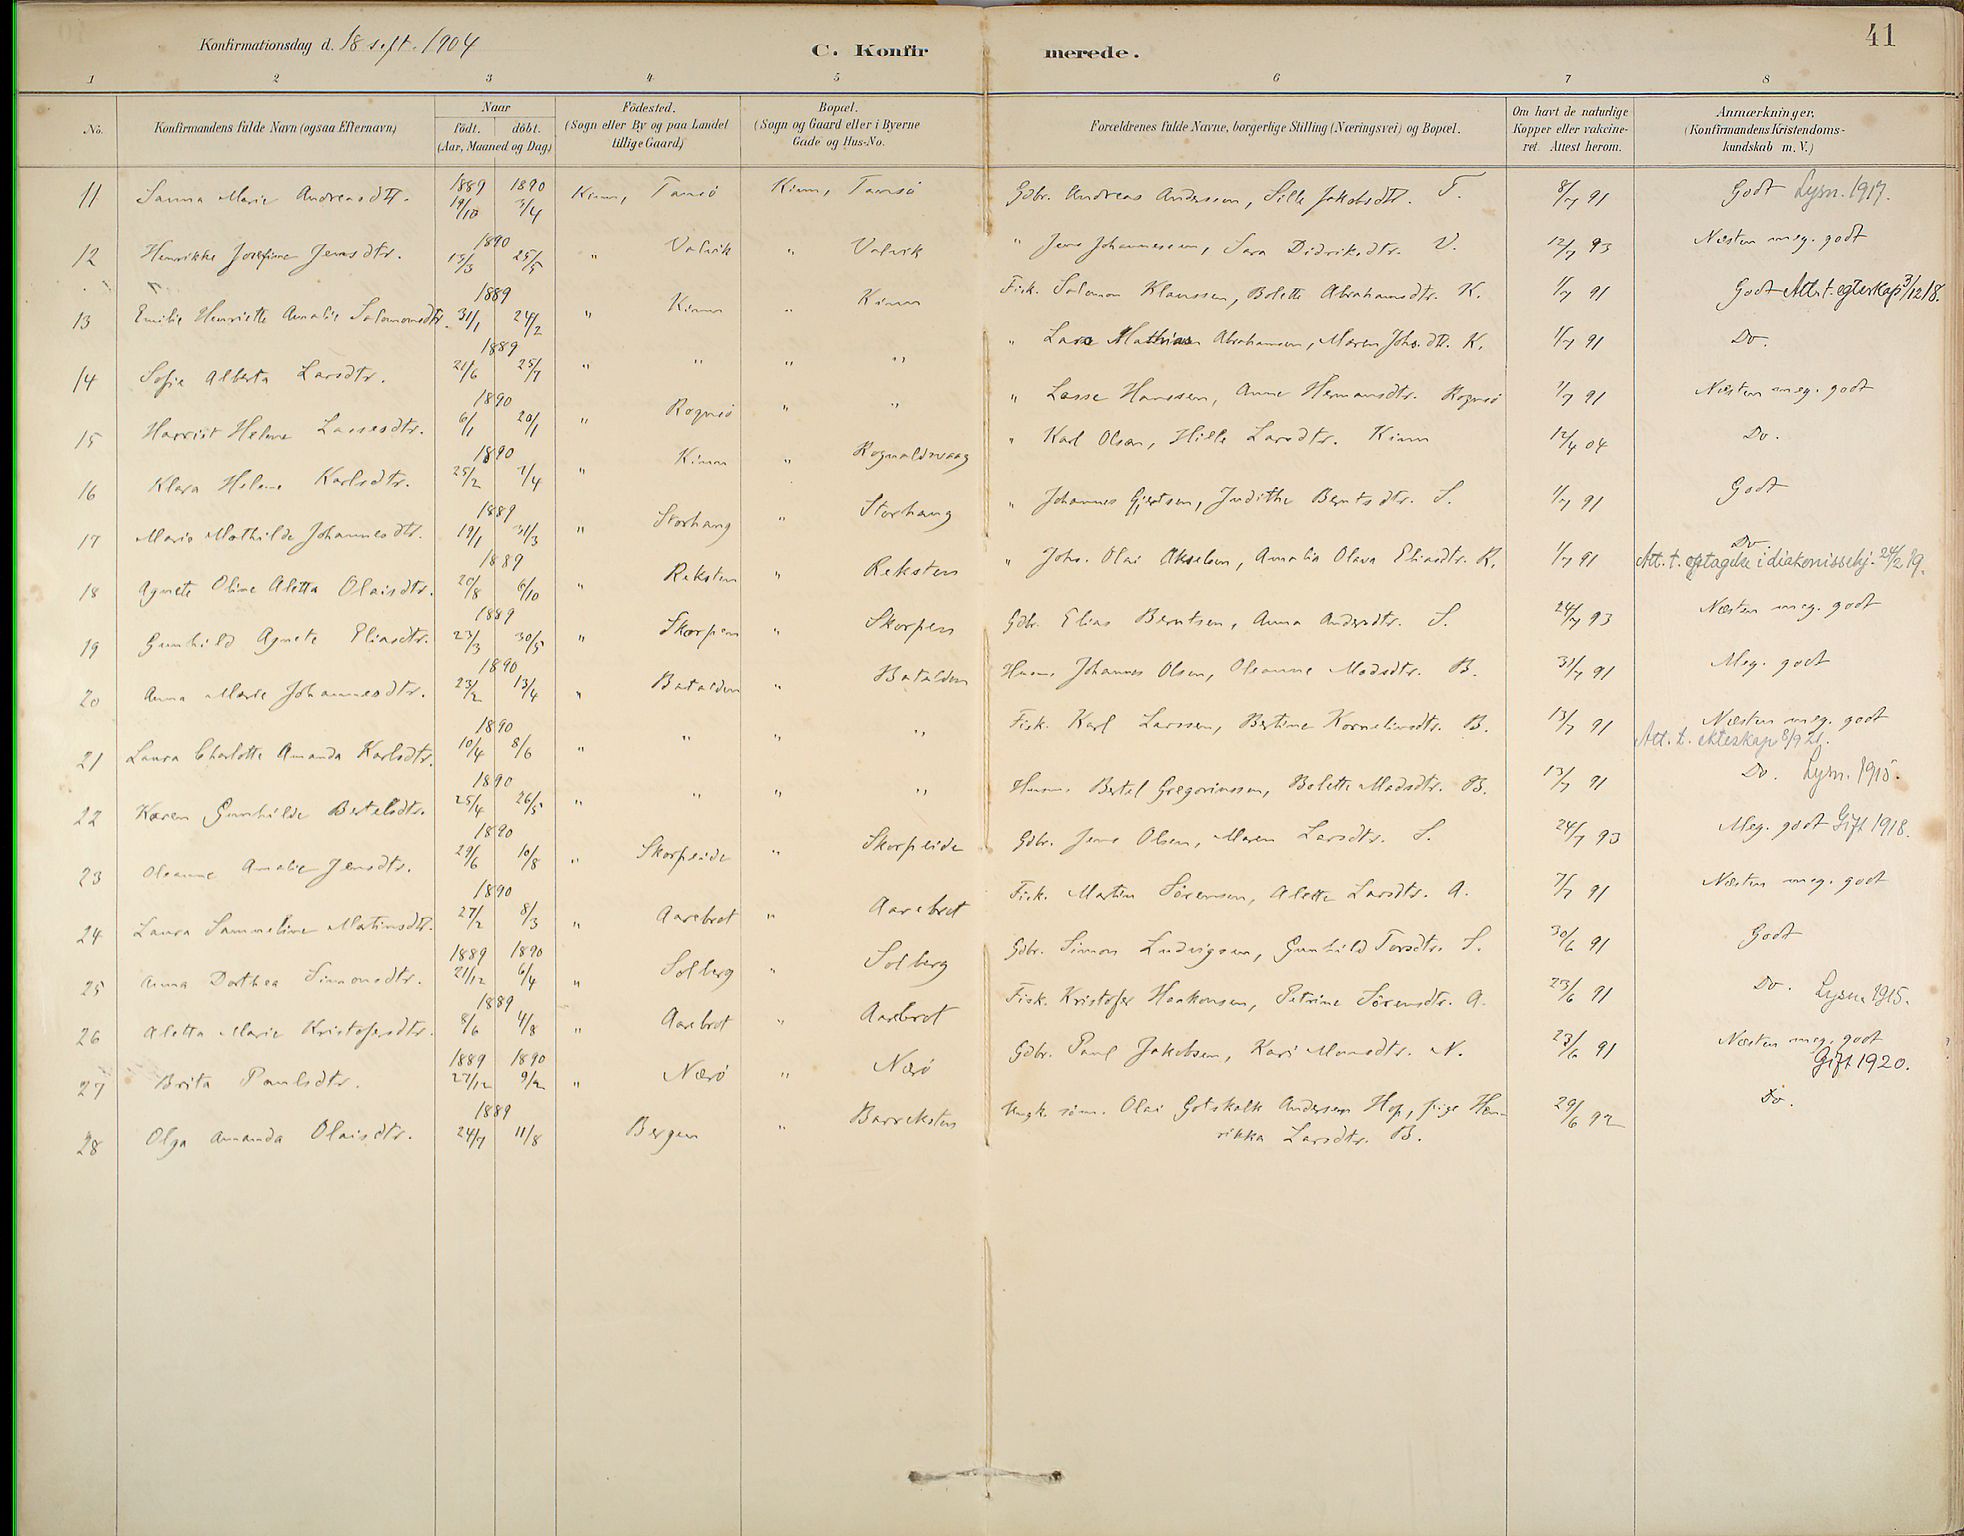 41
Konfirmationsdag d. 18 sept. 1904
C. Konfirmerede.
1 2 3 4 5 6 7 8
No. Konfirmandens fulde Navn (ogsaa Efternavn) Naar født. døbt. (Aar, Maaned og Dag) Fødested. (Sogn eller By og paa Landet tillige Gaard) Bopæl. (Sogn og Gaard eller i Byerne Gade og Hus-No. Forældrenes fulde Navne, borgerlige Stilling (Næringsvei) og Bopæl. Om havt de naturlige Kopper eller vakcineret. Attest herom. Anmærkninger. (Konfirmandens Kristendomskundskab m. V.)
11 Sanna Marie Andreasdtr. 1889 19/10 1890 3/4 Kinn, Tansø Kinn, Tansø Gdbr. Andreas Anderssen, Sille Jakobsdtr. T. 8/7 91 Godt Lysn. 1917.
12 Henrikke Josefine Jensdtr. 1890 13/3 25/5 " Valvik " Valvik " Jens Johannessen, Sara Didriksdtr. V. 12/7 93 Næsten meg. godt
13 Emilie Henriette Amalie Salomonsdtr. 1889 31/1 24/2 " Kinn " Kinn Fisk. Salomon Klaussen, Bolette Abrahamsdtr. K. 1/7 91 Godt Att. t. egteskap 3/12 18.
14 Sofie Alberta Larsdtr. 1889 21/6 25/7 " " " " " Lars Mathias Abrahamsen, Maren Johs.dtr. K. 1/7 91 Do.
15 Harriet Helene Lassesdtr. 1890 6/1 20/1 " Rognsø " " " Lasse Hanssen, Anne Hermansdtr. Rognsø 1/7 91 Næsten meg. godt
16 Klara Helene Karlsdtr. 1890 25/2 7/4 " Kinn " Rognaldsvaag " Karl Olsen, Hille Larsdtr. Kinn 12/4 04 Do.
17 Marie Mathilde Johannesdtr. 1889 19/1 31/3 " Storhaug " Storhaug " Johannes Gjertsen, Judithe Berntsdtr. S. 1/7 91 Godt
18 Agnete Oline Aletta Olaisdtr. 1889 20/8 6/10 " Reksten " Reksten " Johs. Olai Akselsen, Amalia Olava Eliasdtr. R. 1/7 91 Do. Att. t. optagelse i diakonissehj. 24/2 19.
19 Gunhild Agnete Eliasdtr. 1889 23/3 30/5 " Skorpen " Skorpen Gdbr. Elias Berntsen, Anna Andersdtr. S. 24/7 93 Næsten meg. godt
20 Anna Marie Johannesdtr. 1890 23/2 13/4 " Batalden " Batalden Husm. Johannes Olsen, Oleanne Madsdtr. B. 31/7 91 Meg. godt
21 Laura Charlotte Amanda Karlsdtr. 1890 10/4 8/6 " " " " Fisk. Karl Larssen, Bertine Korneliusdtr. B. 13/7 91 Næsten meg. godt Att. t. ekteskap 8/9 21.
22 Karen Gunhilde Bertelsdtr. 1890 25/4 26/5 " " " " Husm. Bertel Gregoriussen, Bolette Madsdtr. B. 13/7 91 Do. Lysn. 1915.
23 Oleanne Amalie Jensdtr. 1890 29/6 10/8 " Skorpeide " Skorpeide Gdbr. Jens Olsen, Maren Larsdtr. S. 24/7 93 Meg. godt Gift 1918.
24 Laura Sammeline Martinsdtr. 1890 27/2 8/3 " Aarebrot " Aarebrot Fisk. Martin Sørensen, Alette Larsdtr. A. 7/7 91 Næsten meg. godt
25 Anna Dorthea Simonsdtr. 1889 21/12 1890 6/4 " Solberg " Solberg Gdbr. Simon Ludvigsen, Gunhild Torsdtr. S. 30/6 91 Godt
26 Aletta Marie Kristofersdtr. 1889 8/6 4/8 " Aarebrot " Aarebrot Fisk. Kristofer Haakonsen, Petrine Sørensdtr. A. 23/6 91 Do. Lysn. 1915.
27 Brita Paulsdtr. 1889 27/12 1890 9/2 " Nærø " Nærø Gdbr. Paul Jakobsen, Kari Monsdtr. N. 23/6 91 Næsten meg. godt Gift 1920.
28 Olga Amanda Olaisdtr. 1889 24/7 11/8 Bergen " Barreksten Ungk. søm. Olai Gotskalk Andersen Hop, pige Henrikka Larsdtr. B. 29/6 92 Do.